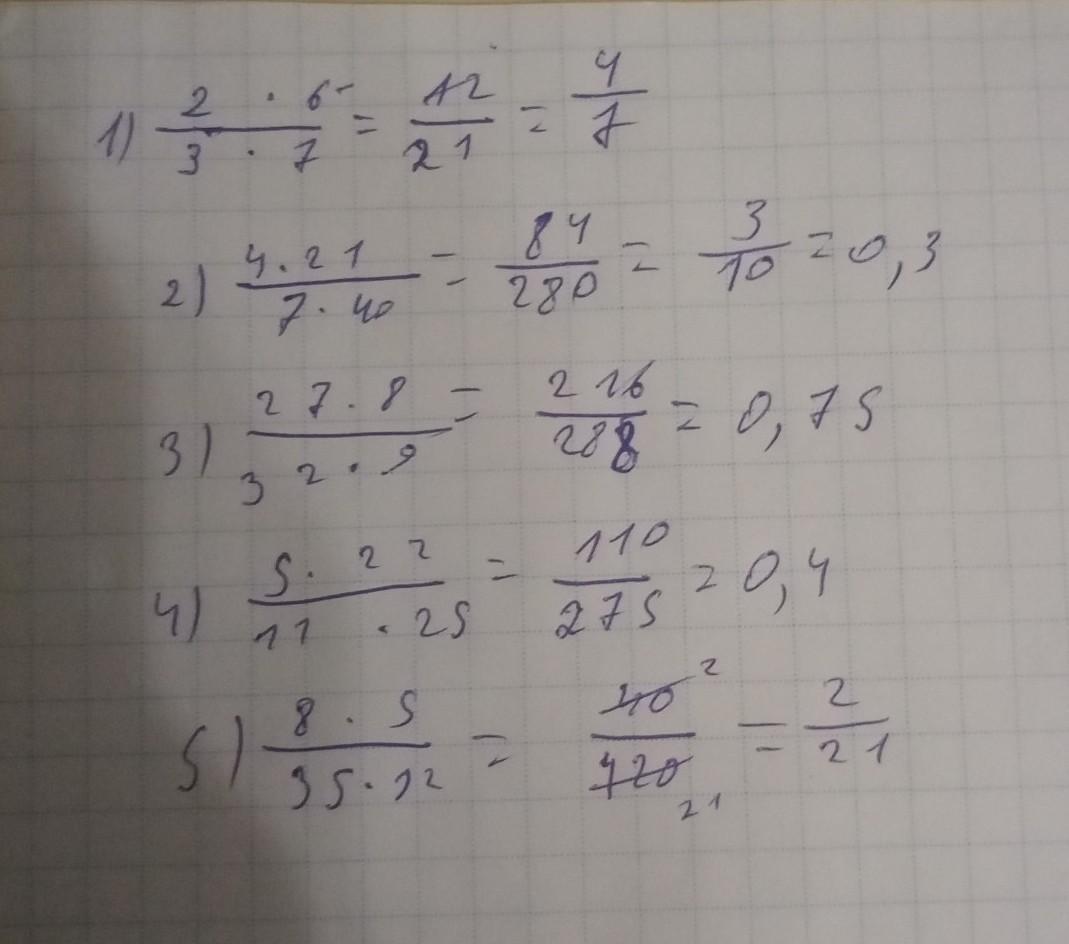 1) (2 · 6)/(3 · 7) = 12/21 = 4/7
2) (4 · 21)/(7 · 40) = 84/280 = 3/10 = 0,3
3) (27 · 8)/(32 · 9) = 216/288 = 0,75
4) (5 · 22)/(11 · 25) = 110/275 = 0,4
5) (8 · 5)/(35 · 12) = 40 2/420 21 = 2/21